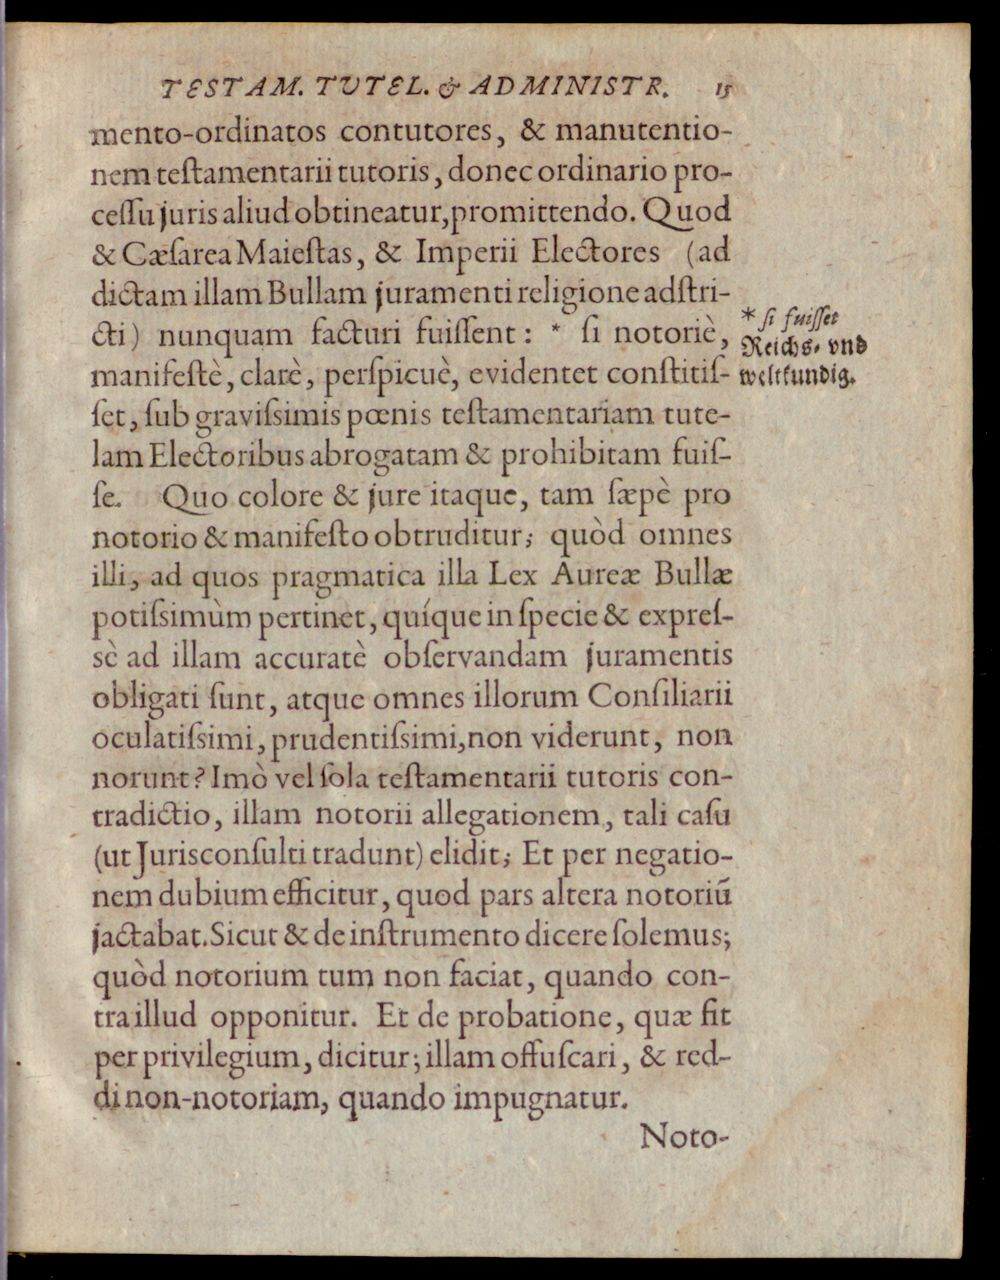 TESTAM. TVTEL. & ADMINISTR. 15
mento-ordinatos contutores, & manutentio-
nem teſtamentarii tutoris, donec ordinario pro-
ceſſu juris aliud obtineatur, promittendo. Quod
& Cæſarea Maieſtas, & Imperii Electores (ad
dictam illam Bullam juramenti religione adſtri-
cti) nunquam facturi fuiſſent: * ſi notoriè,
manifeſtè, clarè, perſpicuè, evidentet conſtitiſ-
ſet, ſub graviſsimis pœnis teſtamentariam tute-
lam Electoribus abrogatam & prohibitam fuiſ-
ſe. Quo colore & jure itaque, tam ſæpè pro
notorio & manifeſto obtruditur; quòd omnes
illi, ad quos pragmatica illa Lex Aureæ Bullæ
potiſsimùm pertinet, quíque in ſpecie & expreſ-
sè ad illam accuratè obſervandam juramentis
obligati ſunt, atque omnes illorum Conſiliarii
oculatiſsimi, prudentiſsimi, non viderunt, non
norunt? Imò vel ſola teſtamentarii tutoris con-
tradictio, illam notorii allegationem, tali caſu
(ut Jurisconſulti tradunt) elidit; Et per negatio-
nem dubium efficitur, quod pars altera notoriū
jactabat. Sicut & de inſtrumento dicere ſolemus;
quòd notorium tum non faciat, quando con-
tra illud opponitur. Et de probatione, quæ fit
per privilegium, dicitur; illam offuſcari, & red-
di non-notoriam, quando impugnatur.
Noto-
* ſi fuiſſet
Reichs- vnd
weltkundig.